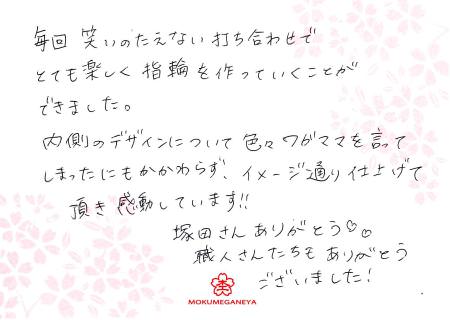 毎回 笑いのたえない打ち合わせで
とても楽しく 指輪を作っていくことが
できました。
内側のデザインについて色々ワガママを言って
しまったにもかかわらず、イメージ通り仕上げて
頂き感動しています!!
塚田さんありがとう♡♡
職人さんたちも ありがとう
ございました!
MOKUMEGANEYA